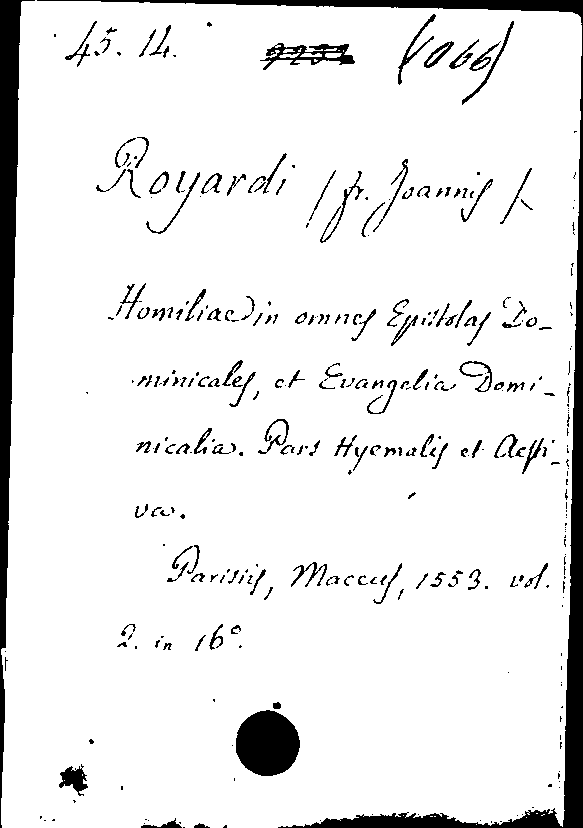 45. 14. (1066)
Royardi /fr. Joannis/.
Homiliae in omnes Epistolas Do-
minicales, et Evangelia Domi-
nicalia. Pars Hyemalis et Aesti-
va.
Parisiis, Maceus, 1553. vol.
2. in 16°.